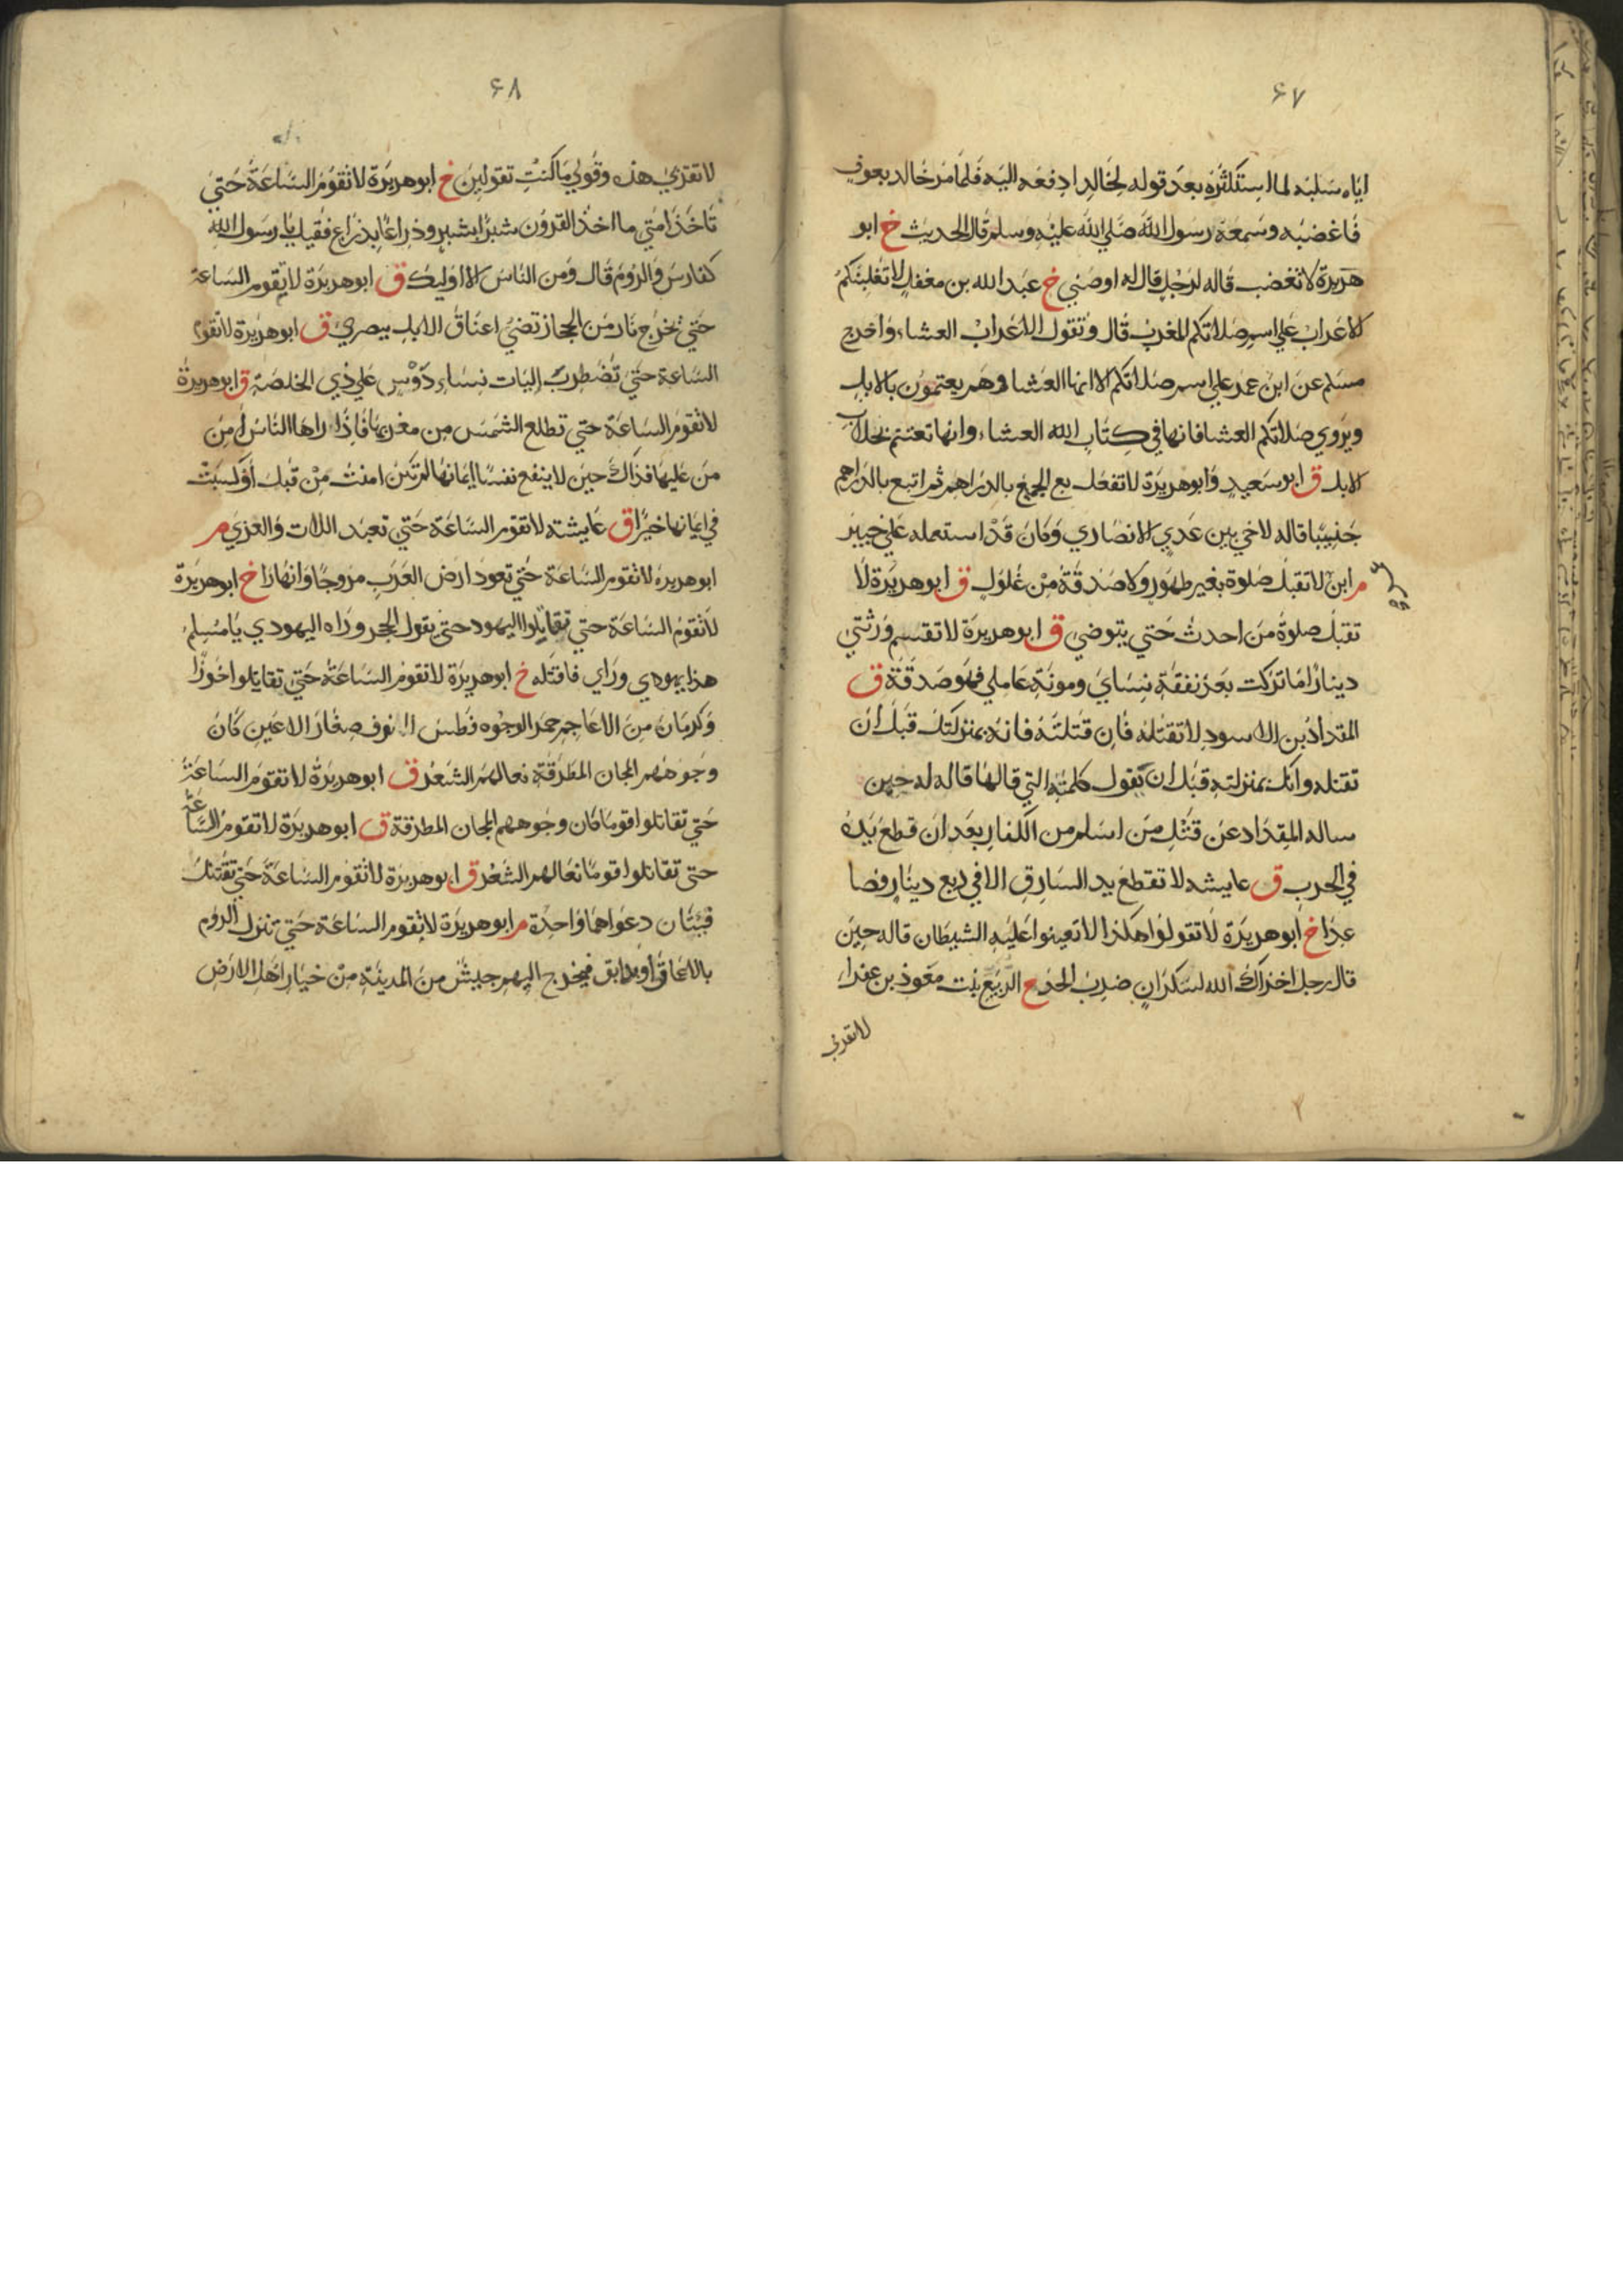 ۶۷
اياه سلبه لما استكثره بعد قوله لخالد ادفعه اليه فلما مر خالد بعوف
فاغضبه وسمعه رسول الله صلي الله عليه وسلم قال الحديث خ ابو
هريرة لا تغضب قاله لرجل قال له اوصني خ عبد الله بن مغفل لا تغلبنكم
الاعراب علي اسم صلاتكم المغرب قال وتقول الاعراب العشاء واخرج
مسلم عن ابن عمر علي اسم صلاتكم الا انها العشا وهم يعتمون بالابل
ويروي صلاتكم العشا فانها في كتاب الله العشاء وانها تعتم بحلاب
الابل ق ابو سعيد وابو هريرة لا تفعل بع الجمع بالدراهم ثم اتبع بالدراهم
جنيبا قاله لاخي بين عدي الانصاري وكان قد استعمله علي خيبر
م ابن لا تقبل صلوة بغير طهور ولا صدقة من غلول ق ابو هريرة لا
تقبل صلوة من احدث حتي يتوضي ق ابو هريرة لا تقتسم ورثتي
دينارا ما تركت بعد نفقة نساي ومونة عاملي فهو صدقة ق
المقداد بن الاسود لا تقتله فان قتلته فانه بمنزلتك قبل ان
تقتله وانك بمنزلته قبل ان يقول كلمته التي قالها قاله له حين
ساله المقداد عن قتل من اسلم من الكفار بعد ان قطع يده
في الحرب ق عايشه لا تقطع يد السارق الا في ربع دينار فصا
عدا خ ابو هريرة لا تقولوا هكذا لا تعينوا عليه الشيطان قاله حين
قال رجل اخزاك الله لسكران ضرب الحد خ الربيع بنت معوذ بن عفرا
لا تقولي
۶۸
لا تقولي هذه وقولي ما كنت تقولين خ ابو هريرة لا تقوم الساعة حتي
تاخذ امتي ما اخذ القرون شبرا بشبر وذراعا بذراع فقيل يا رسول الله
كفارس والروم قال ومن الناس الا اوليك ق ابو هريرة لا تقوم الساعة
حتي تخرج نار من الحجاز تضي اعناق الابل ببصري ق ابو هريرة لا تقوم
الساعة حتي تضطرب اليات نساء دوس علي ذي الخلصة ق ابو هريرة
لا تقوم الساعة حتي تطلع الشمس من مغربها فاذا راها الناس امن
من عليها فذاك حين لا ينفع نفسا ايمانها لم تكن امنت من قبل او كسبت
في ايمانها خيرا ق عايشة لا تقوم الساعة حتي تعبد اللات والعزي م
ابو هريرة لا تقوم الساعة حتي تعود ارض العرب مروجا وانهارا خ ابو هريرة
لا تقوم الساعة حتي تقاتلوا اليهود حتي يقول الحجر وراه اليهودي يا مسلم
هذا يهودي وراي فاقتله خ ابو هريرة لا تقوم الساعة حتي تقاتلوا خوزا
وكرمان من الاعاجم حمر الوجوه فطس الانوف صغار الاعين كان
وجوههم المجان المطرقة نعالهم الشعر ق ابو هريرة لا تقوم الساعة
حتي تقاتلوا قوما كان وجوههم المجان المطرقة ق ابو هريرة لا تقوم الساعة
حتي تقاتلوا قوما نعالهم الشعر ق ابو هريرة لا تقوم الساعة حتي تقتتل
فئتان دعواهما واحدة م ابو هريرة لا تقوم الساعة حتي تنزل الروم
بالاعماق او بدابق فيخرج اليهم جيش من المدينة من خيار اهل الارض